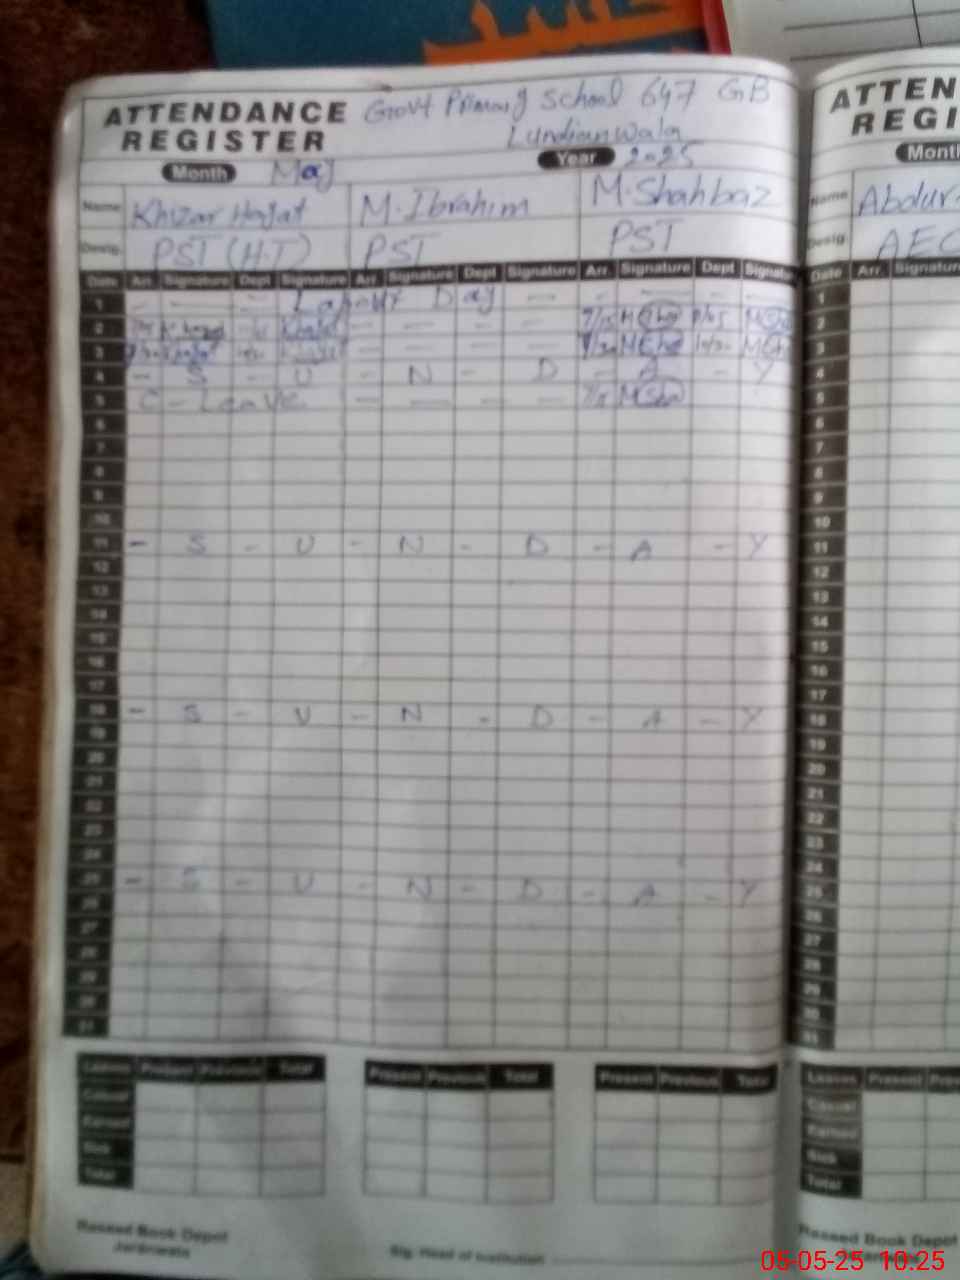 ATTENDANCE REGISTER Govt Primary School 647 GB
Lundianwala
Month May Year 2025
Name Khizar Hayat M. Ibrahim M. Shahbaz
Desig. PST (H.T) PST PST
Date Arr. Signature Dept Signature Arr. Signature Dept Signature Arr. Signature Dept Signature
1 - - - Labour Day - - - -
2 - - - -
3 - - - -
4 - S - U - N - D - A - Y
5 C - Leave - - - -
6
7
8
9
10
11 - S - U - N - D - A - Y
12
13
14
15
16
17
18 - S - U - N - D - A - Y
19
20
21
22
23
24
25 - S - U - N - D - A - Y
26
27
28
29
30
31
Leaves Present Previous Total Present Previous Total Present Previous Total
Casual
Earned
Sick
Total
Raseed Book Depot
Jaranwala
Sig. Head of Institution
ATTEN
REGI
Month
Name Abdur
Desig. AEO
Date Arr. Signature
1
2
3
4
5
6
7
8
9
10
11
12
13
14
15
16
17
18
19
20
21
22
23
24
25
26
27
28
29
30
31
Leaves Present Prev
Casual
Earned
Sick
Total
Raseed Book Depot
05-05-25 10:25